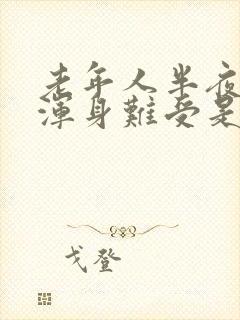 老年人半夜
渾身難受是
戈登